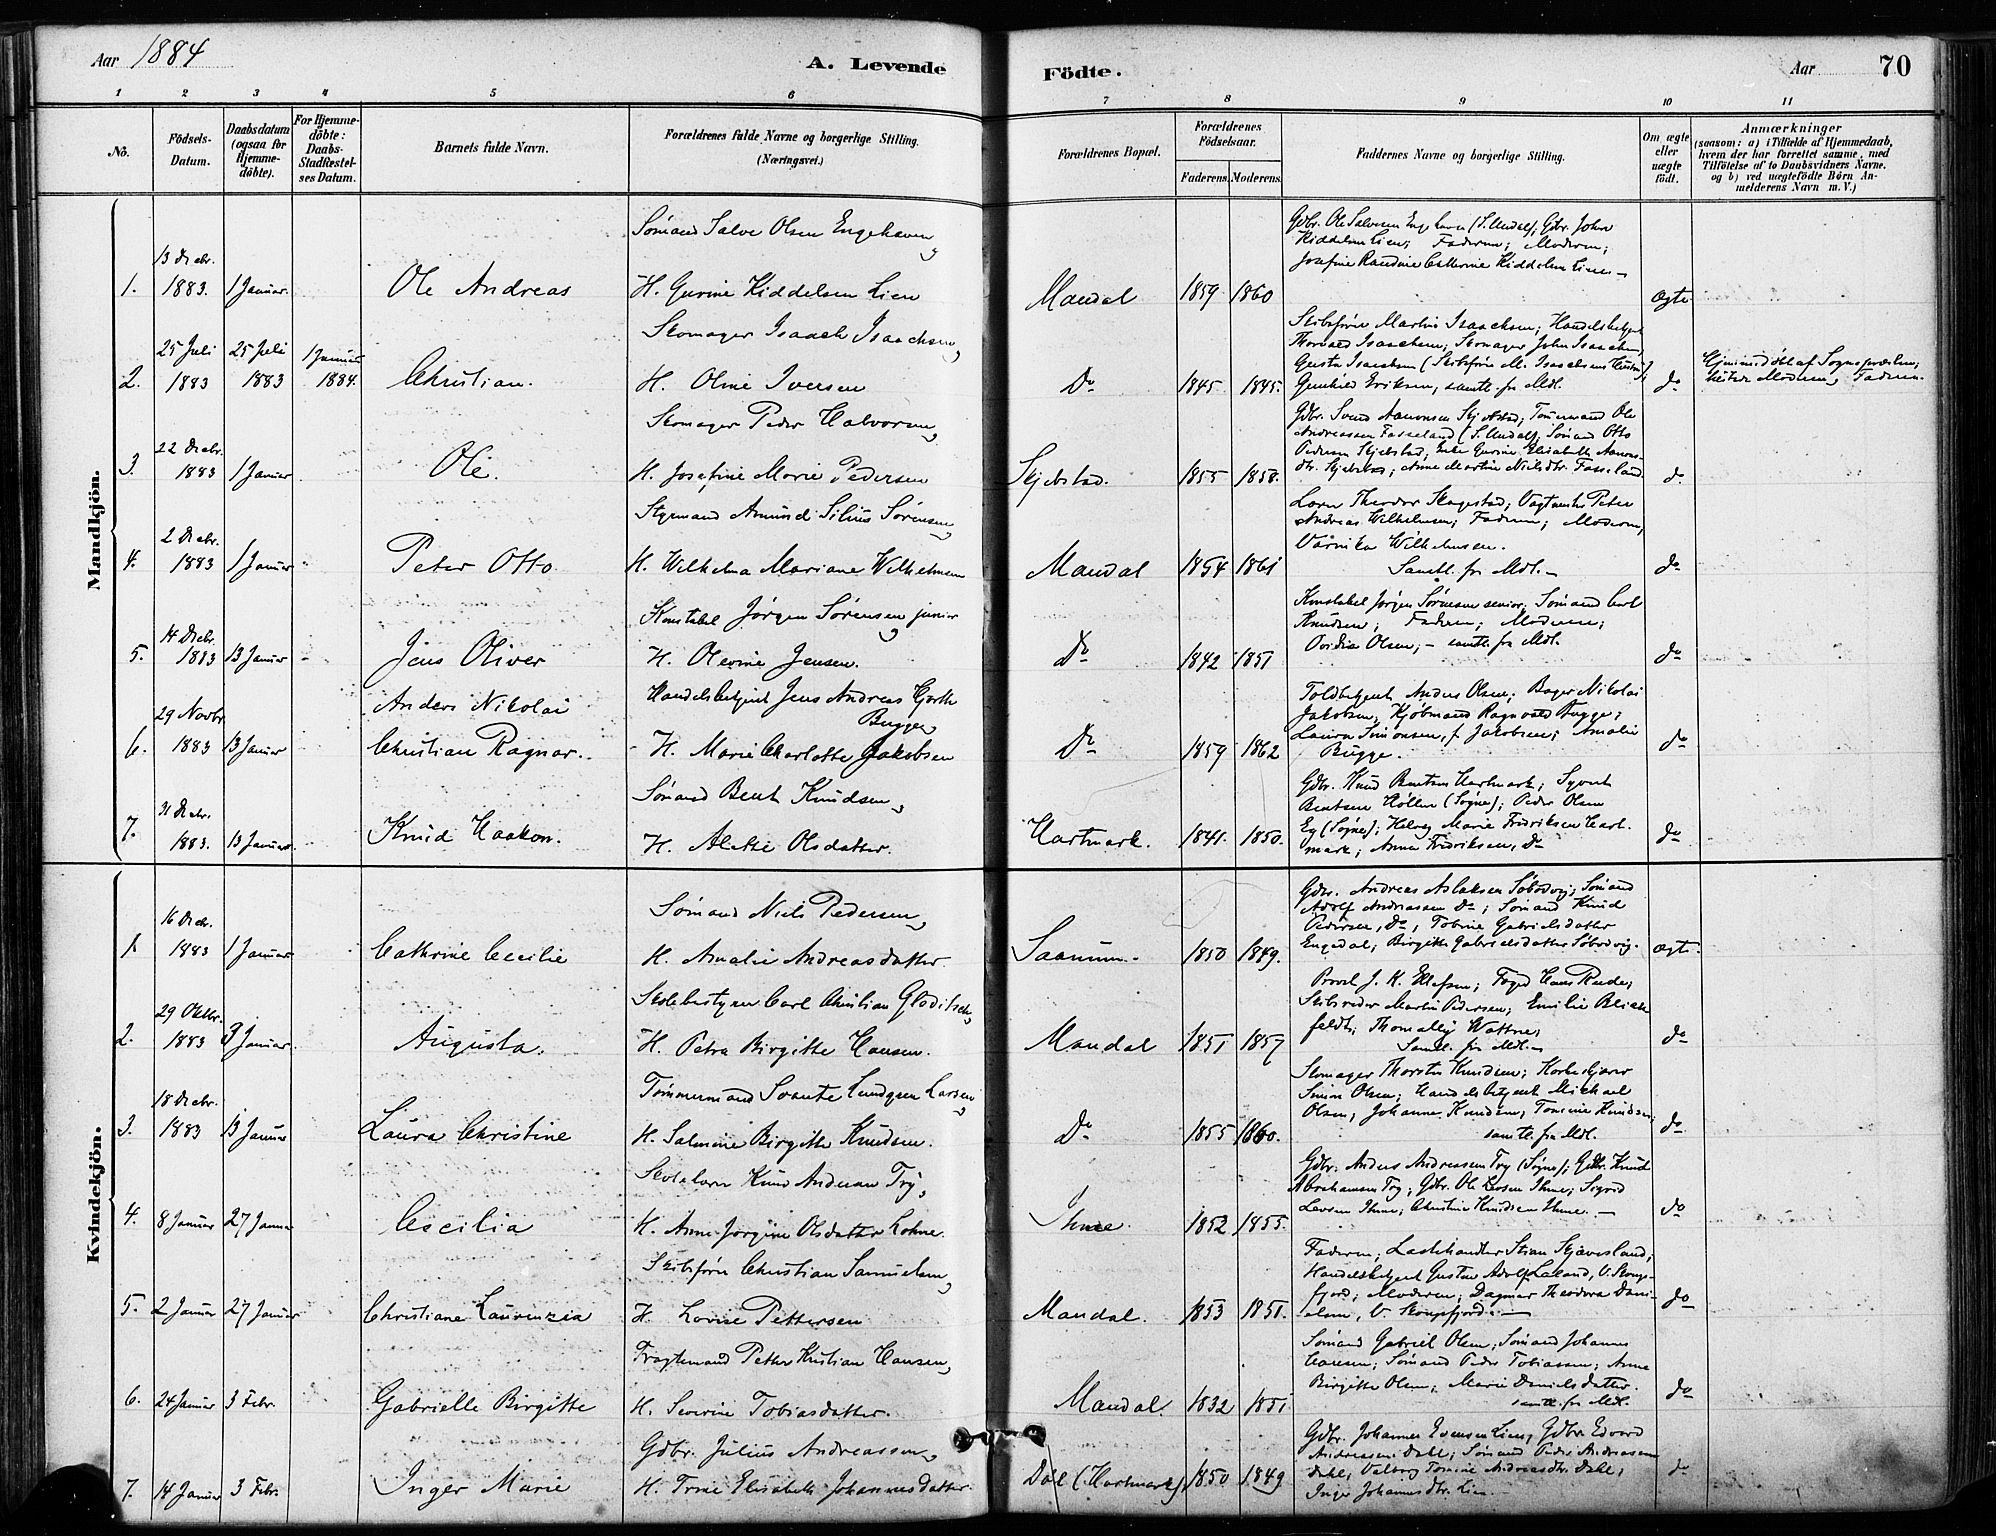 Aar 1884
A. Levende
Födte.
Aar
70
1 2 3 4 5 6 7 8 9 10 11
No.
Födsels-
Datum.
Daabsdatum
(ogsaa for
Hjemme-
döbte).
For Hjemme-
döbte:
Daabs-
Stadfæstel-
ses Datum.
Barnets fulde Navn.
Forældrenes fulde Navne og borgerlige Stilling.
(Næringsvei.)
Forældrenes Bopæl.
Forældrenes
Födselsaar.
Faderens. Moderens.
Faddernes Navne og borgerlige Stilling.
Om ægte
eller
uægte
födt.
Anmærkninger
(saasom: a) i Tilfælde af Hjemmedaab,
hvem der har forrettet samme, med
Tilföielse af to Daabsvidners Navne.
og b) ved uægtefödte Börn An-
melderens Navn m. V.)
Mandkjön.
1. 13 Decbr. 1883. 1 Januar. Ole Andreas
Sømand Salve Olsen Engehaven,
H. Gurine Kiddelsen Lien
Mandal 1859 1860
Gdbr. Ole Salvesen Engehaven (S. Undal); Gdbr. John
Kiddelsen Lien; Faderen; Moderen;
Josefine Raudine Cathrine Kiddelsen Lien
ægte
2. 25 Juli 1883 25 Juli 1883 1 Januar 1884. Christian.
Skomager Isaach Isaachsen,
H. Oline Iversen
Do 1845 1845.
Skibsfører Martin Isaachsen; Handelsbetjent
Thorvald Isaachsen; Skomager John Isaachsen,
Gusta Isaachsen (Skibsfører M. Isaachsens Hustru);
Gunhild Eriksen, samtl. fra Mdl.
do
Hjemmedøbt af Sognepræsten;
Moderen, Faderen.
3. 22 Decbr. 1883 1 Januar Ole.
Skomager Peder Halvorsen,
H. Josefine Marie Pedersen
Skjebstad. 1855 1858.
Gdbr. Svend Aanonsen Skjebstad; Tømmermand Ole
Andreassen Fasseland (S. Undal); Sømand Otto
Pedersen Skjebstad, Enke Gurine Elisabeth Aanons-
dtr. Skjebstad; Anne Martine Nielsdtr. Fasseland.
do
4. 2 Decbr. 1883 1 Januar Peter Otto
Styrmand Amund Silius Sørensen,
H. Wilhelma Mariane Wilhelmsen
Mandal 1854 1861
Theodor Skagestad, Peter
Andreas Wilhelmsen; Faderen; Moderen;
Wilhelmsen.
Samtl. fra Mdl.
do
5. 14 Decbr. 1883 13 Januar Jens Oliver
Konstabel Jørgen Sørensen junior
H. Olevine Jensen.
Do 1842 1851
Konstabel Jørgen Sørensen senior; Sømand Carl
Knudsen; Faderen; Moderen;
Ovidia Olsen; samtl. fra Mdl.
do
6. 29 Novbr. 1883 13 Januar Anders Nikolai
Christian Ragnar.
Handelsbetjent Jens Andreas Gjerth
Bugge,
H. Marie Charlotte Jakobsen
Do 1859 1862
Toldbetjent Anders Olsen; Bager Nikolai
Jakobsen; Kjøbmand Ragnvald Bugge;
Laura Simonsen, f. Jakobsen; Amalie
Bugge.
do
7. 31 Decbr. 1883. 13 Januar Knud Haakon.
Sømand Bent Knudsen,
H. Alette Olsdatter.
Hartmark. 1841. 1850.
Gdbr. Knud Bentsen Hartmark; Syvert
Bentsen Høllen (Søgne); Peder Olsen
Eg (Søgne); Helvig Marie Fredriksen Hart-
mark; Anna Fredriksen, Do
do
Kvindekjön.
1. 16 Decbr. 1883 1 Januar Cathrine Cecilie
Sømand Niels Pedersen,
H. Amalie Andreasdatter.
Saanum. 1850 1849.
Gdbr. Andreas Aslaksen Søbodvig; Sømand
Adolf Andreassen Do; Sømand Knud
Pedersen, Do, Tobine Gabrielsdatter
Engedal; Birgitte Gabrielsdatter Søbodvig.
ægte.
2. 29 Oktbr. 1883 Januar Augusta.
Skolebestyrer Carl Christian Gloditsch,
H. Petra Birgitte Hansen.
Mandal 1851 1857
Provst J. K. Ellefsen; Foged Hans Rude;
Skibsreder Martin Pedersen; Emilie Blich-
feldt; Thomally Wattne;
Samtl. fra Mdl.
do
3. 18 Decbr. 1883 13 Januar Laura Christine
Tømmermand Svante Lundgren Larsen,
H. Salmine Birgitte Knudsen.
Do 1855 1860.
Skomager Thorsten Knudsen;
Simon Olsen; Handelsbetjent Michael
Olsen; Johanne Knudsen; Tomine Knudsen;
samtl. fra Mdl.
do
4. 8 Januar 27 Januar Cecilia
Skolelærer Knud Andersen Try,
H. Anne Jørgine Olsdatter Lohne.
Ihme. 1852 1855.
Gdbr. Anders Andreassen Try (Søgne); Gdbr. Knud
Abrahamsen Try; Gdbr. Ole Larsen Ihme; Sigrid
Larsen Ihme; Christine Knudsen Ihme.
do
5. 2 Januar 27 Januar Christiane Laurenzia
Skibsfører Christian Samuelsen,
H. Lovise Pettersen
Mandal. 1853 1851.
Faderen; Stian Skjævesland;
Handelsbetjent Gustav Adolf Laland,
Moderen; Dagmar Theodora Dani-
elsen,
do
6. 24 Januar 3 Febr. Gabrielle Birgitte
Fragtemand Petter Kristian Hansen,
H. Severine Tobiasdatter.
Mandal. 1832 1851
Sømand Gabriel Olsen; Sømand Johannes
Hansen; Sømand Peder Tobiassen; Anne
Birgitte Olsen; Marie Danielsdatter.
samtl. fra Mdl.
do
7. 14 Januar 3 Febr. Inger Marie
Gdbr. Julius Andreassen,
H. Trine Elisabeth Johannesdatter.
Dal (Hartmark) 1850 1849
Gdbr. Johannes Evensen Lien; Gdbr. Edvard
Andreassen Dahl; Sømand Peder Andreassen
Dahl; Valborg Tomine Andreasdtr. Dahl;
Inger Johannesdtr. Lien.
do